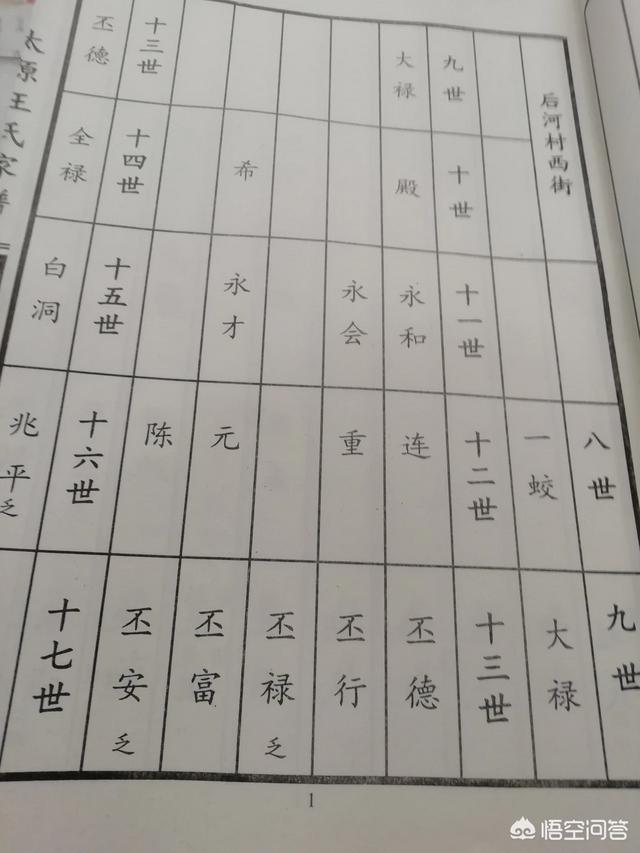 后河村西街
八世
九世
一蛟
大禄
九世
十世
十一世
十二世
十三世
大禄
殿
永和
连
丕德
永会
重
丕行
丕禄乏
希
永才
元
丕富
陈
丕安乏
十三世
十四世
十五世
十六世
十七世
丕德
全禄
白洞
兆平乏
太原王氏家谱
1
悟空问答